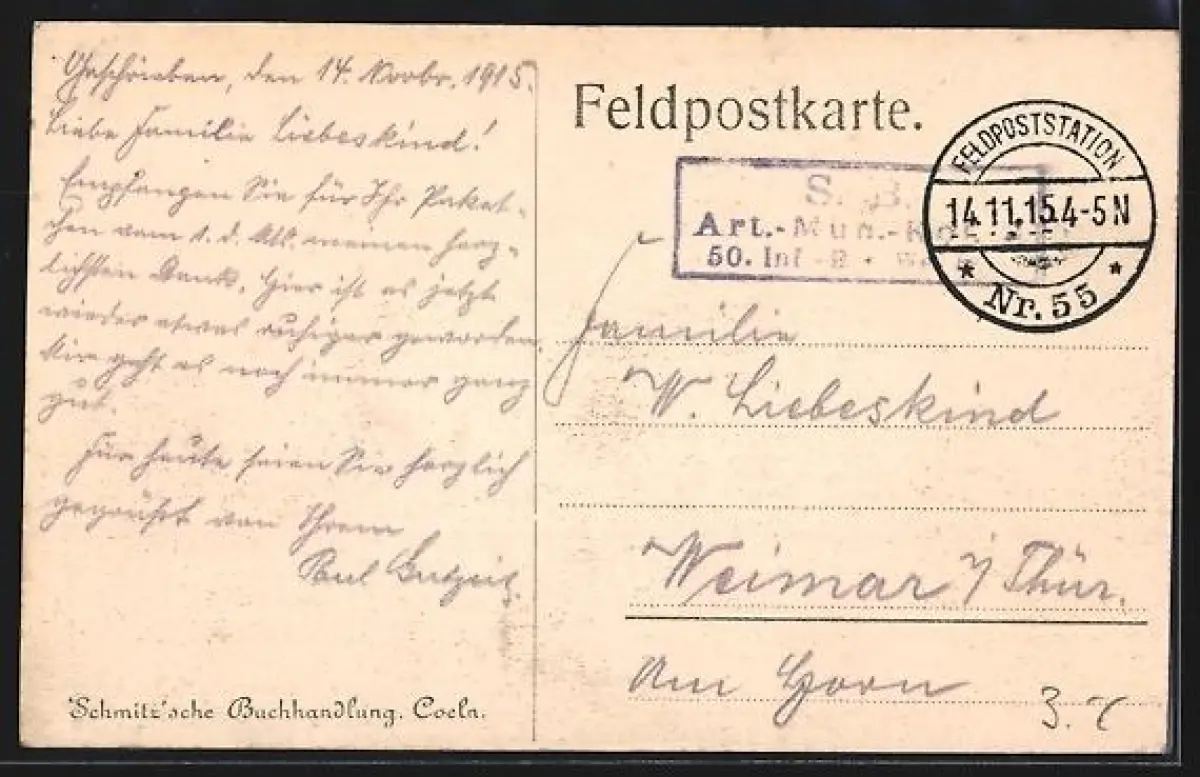 Geschrieben, den 14. Novbr. 1915.
Liebe Familie Liebeskind!
Empfangen Sie für Ihr Paket-
chen vom 1. d. Mts. meinen herz-
lichsten Dank. Hier ist es jetzt
wieder etwas ruhiger geworden.
Mir geht es noch immer ganz
gut.
Für heute seien Sie herzlich
gegrüßt von Ihrem
Paul Gutzeit.
Schmitz'sche Buchhandlung. Coeln.
Feldpostkarte.
S. B.
Art.-Mun.-
50. Inf.-
FELDPOSTSTATION
14.11.15.4-5N
* Nr. 55 *
Familie
W. Liebeskind
Weimar i/Thür.
Am Horn
3.